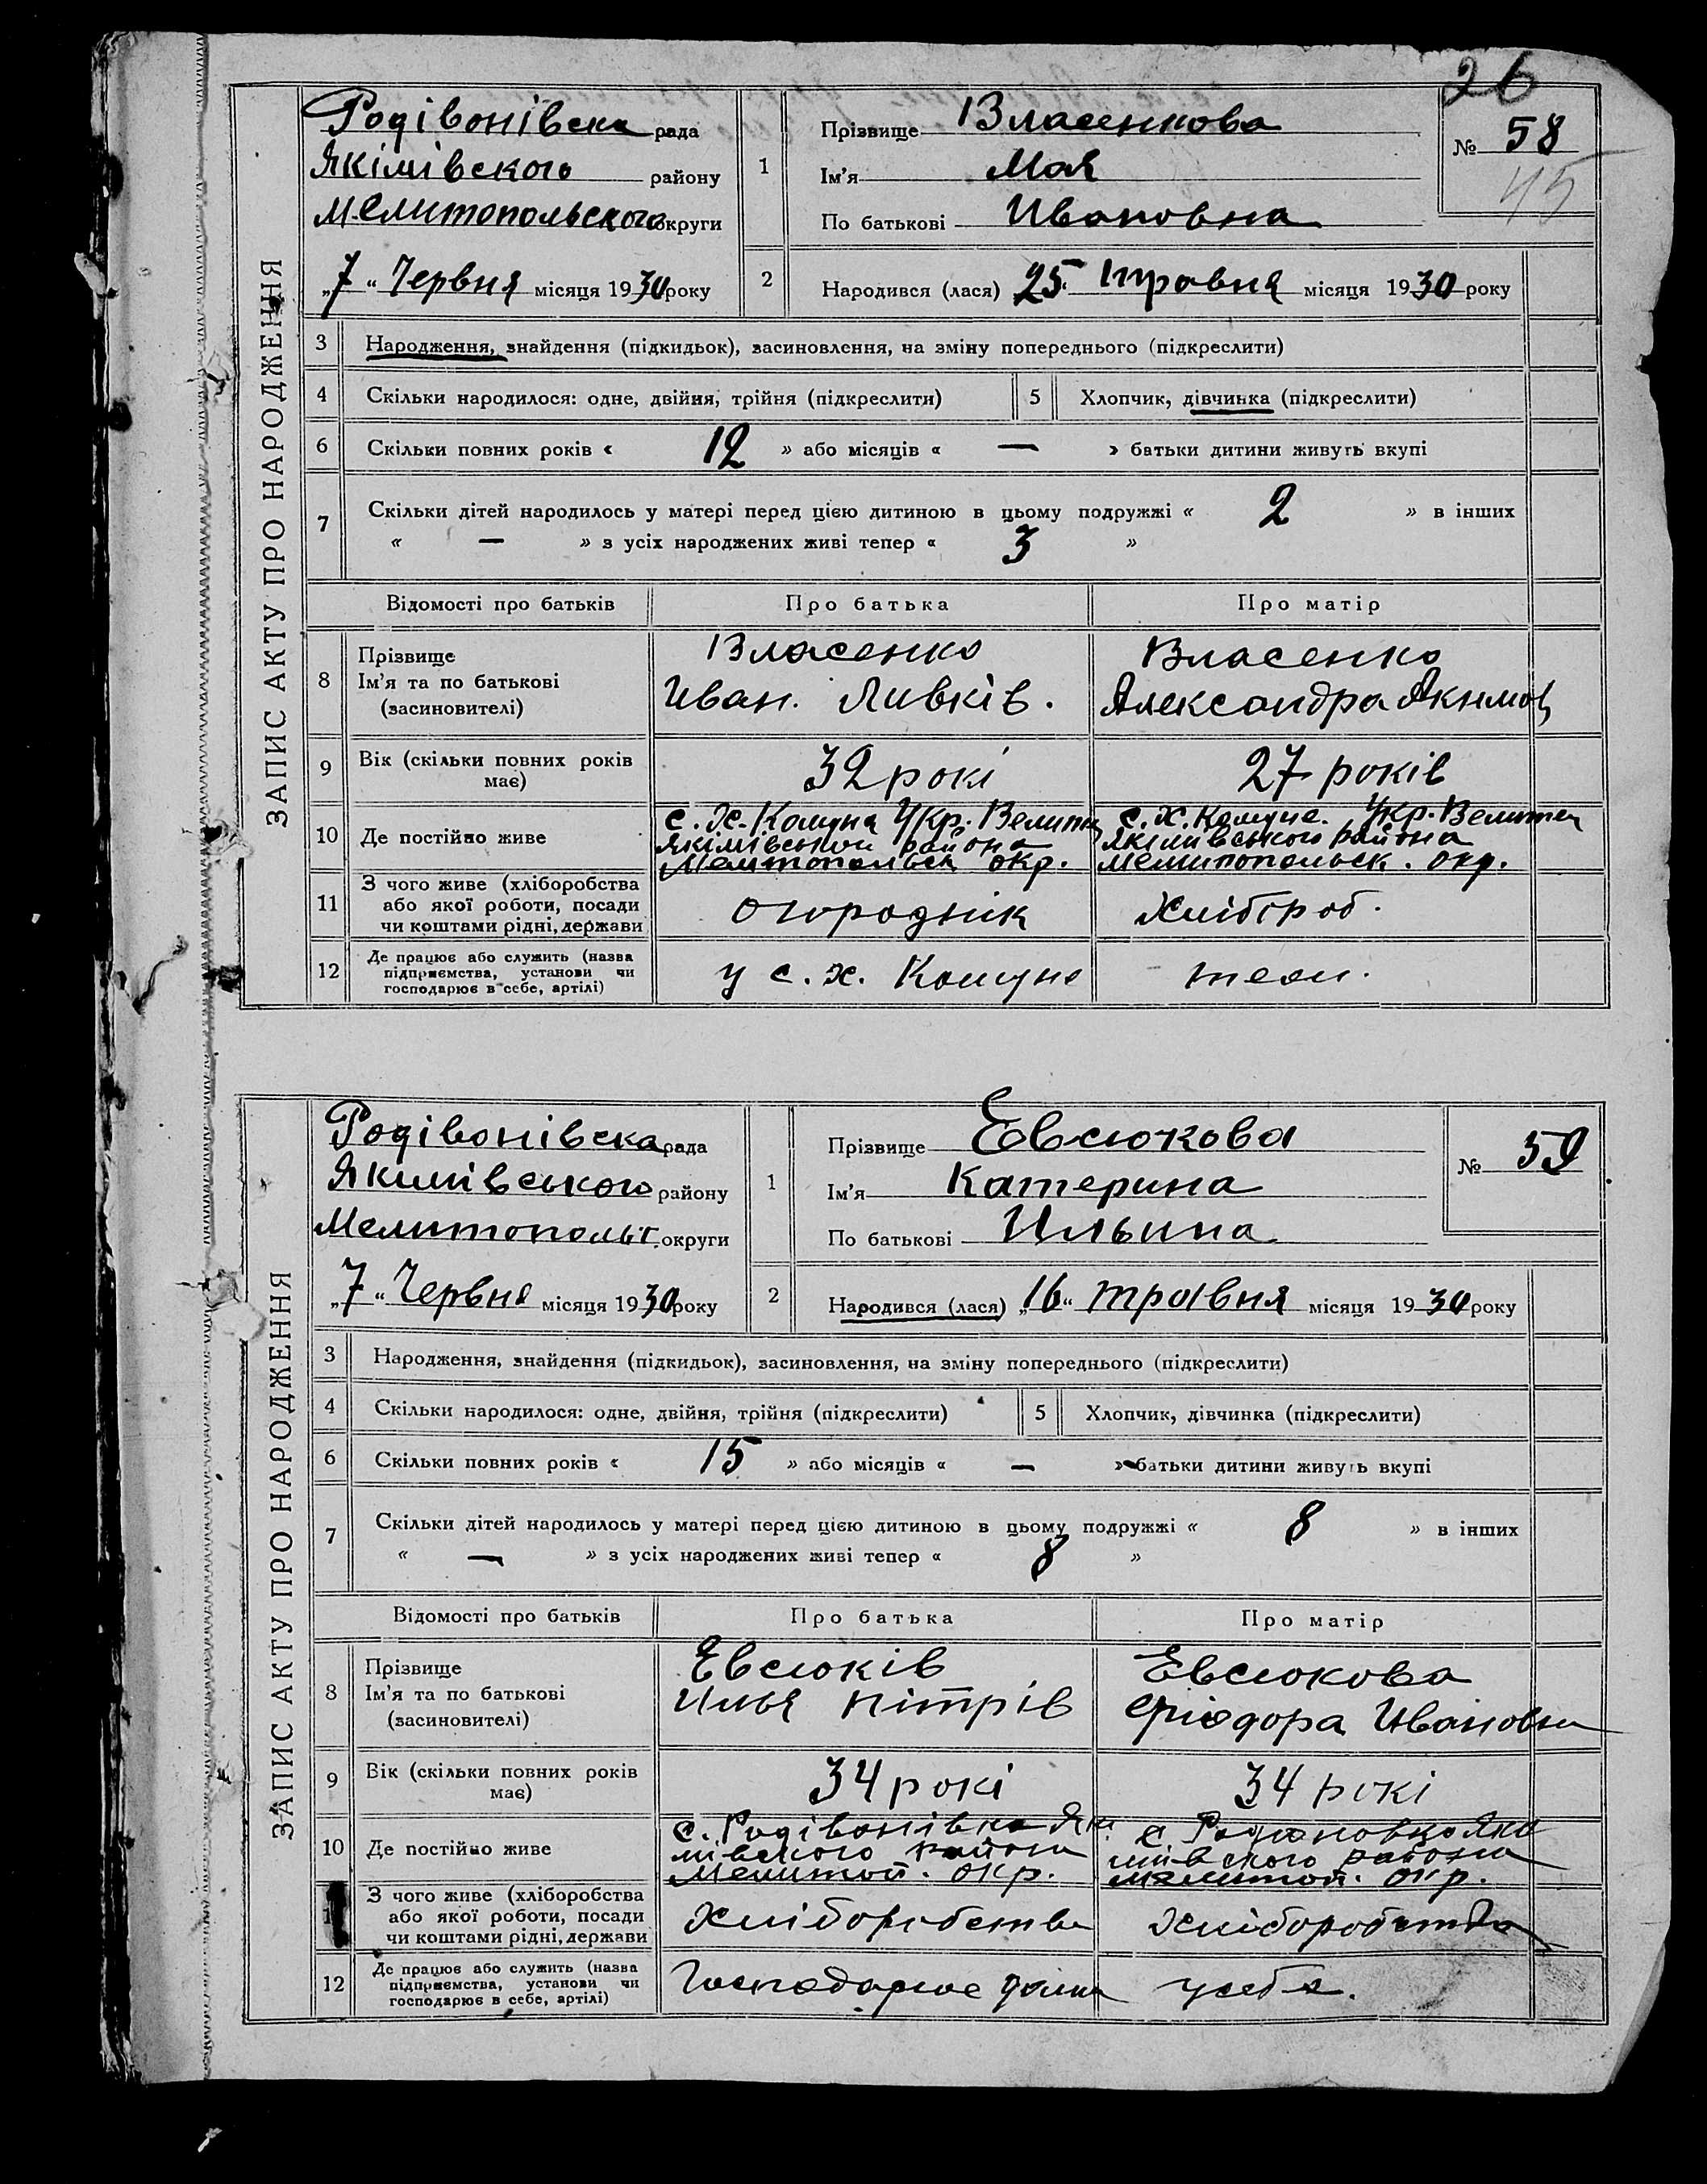 26
ЗАПИС АКТУ ПРО НАРОДЖЕННЯ
Родівонівска рада
Якімівского району
Мелитопольского округи
„7“ Червня місяця 1930 року
1
Прізвище Власенкова
Ім'я Мая
По батькові Ивановна
№ 58
45
2
Народився (лася) 25. травня місяця 1930 року
3 Народження, знайдення (підкидьок), засиновлення, на зміну попереднього (підкреслити)
4 Скільки народилося: одне, двійня, трійня (підкреслити) 5 Хлопчик, дівчинка (підкреслити)
6 Скільки повних років « 12 » або місяців « — » батьки дитини живуть вкупі
7 Скільки дітей народилось у матері перед цією дитиною в цьому подружжі « 2 » в інших
« — » з усіх народжених живі тепер « 3 »
Відомості про батьків Про батька Про матір
8 Прізвище
Ім'я та по батькові
(засиновителі)
Власенко
Иван.
Власенко
Александра Акимов
9 Вік (скільки повних років
має)
32 рокі
27 років
10 Де постійно живе
с. х. Комуна Укр.
Якімівськой района
Мелитопольск окр.
с. х. Комуне. Укр.
Якімівського района
Мелитопольск. окр.
11 З чого живе (хліборобства
або якої роботи, посади
чи коштами рідні, держави
огородник
Хлібороб.
12 Де працює або служить (назва
підприємства, установи чи
господарює в себе, артілі)
у с. х. Комуне
теж.
ЗАПИС АКТУ ПРО НАРОДЖЕННЯ
Родівонівска рада
Якимівського району
Мелитопольс. округи
„7“ Червня місяця 1930 року
1
Прізвище Евсюкова
Ім'я Катерина
По батькові Ильина
№ 59
2
Народився (лася) „16“ травня місяця 1930 року
3 Народження, знайдення (підкидьок), засиновлення, на зміну попереднього (підкреслити)
4 Скільки народилося: одне, двійня, трійня (підкреслити) 5 Хлопчик, дівчинка (підкреслити)
6 Скільки повних років « 15 » або місяців « — » батьки дитини живуть вкупі
7 Скільки дітей народилось у матері перед цією дитиною в цьому подружжі « 8 » в інших
« — » з усіх народжених живі тепер « 8 »
Відомості про батьків Про батька Про матір
8 Прізвище
Ім'я та по батькові
(засиновителі)
Евсюків
Илья Пітрів
Евсюкова
Ивановна
9 Вік (скільки повних років
має)
34 рокі
34 рокі
10 Де постійно живе
с. Родівонівка Які
мівского района
Мелитоп. окр.
с. Родионовка Яки
мівского района
Мелитоп. окр.
З чого живе (хліборобства
або якої роботи, посади
чи коштами рідні, держави
Хліборобства
Хліборобства
12 Де працює або служить (назва
підприємства, установи чи
господарює в себе, артілі)
Господарює
у себя.